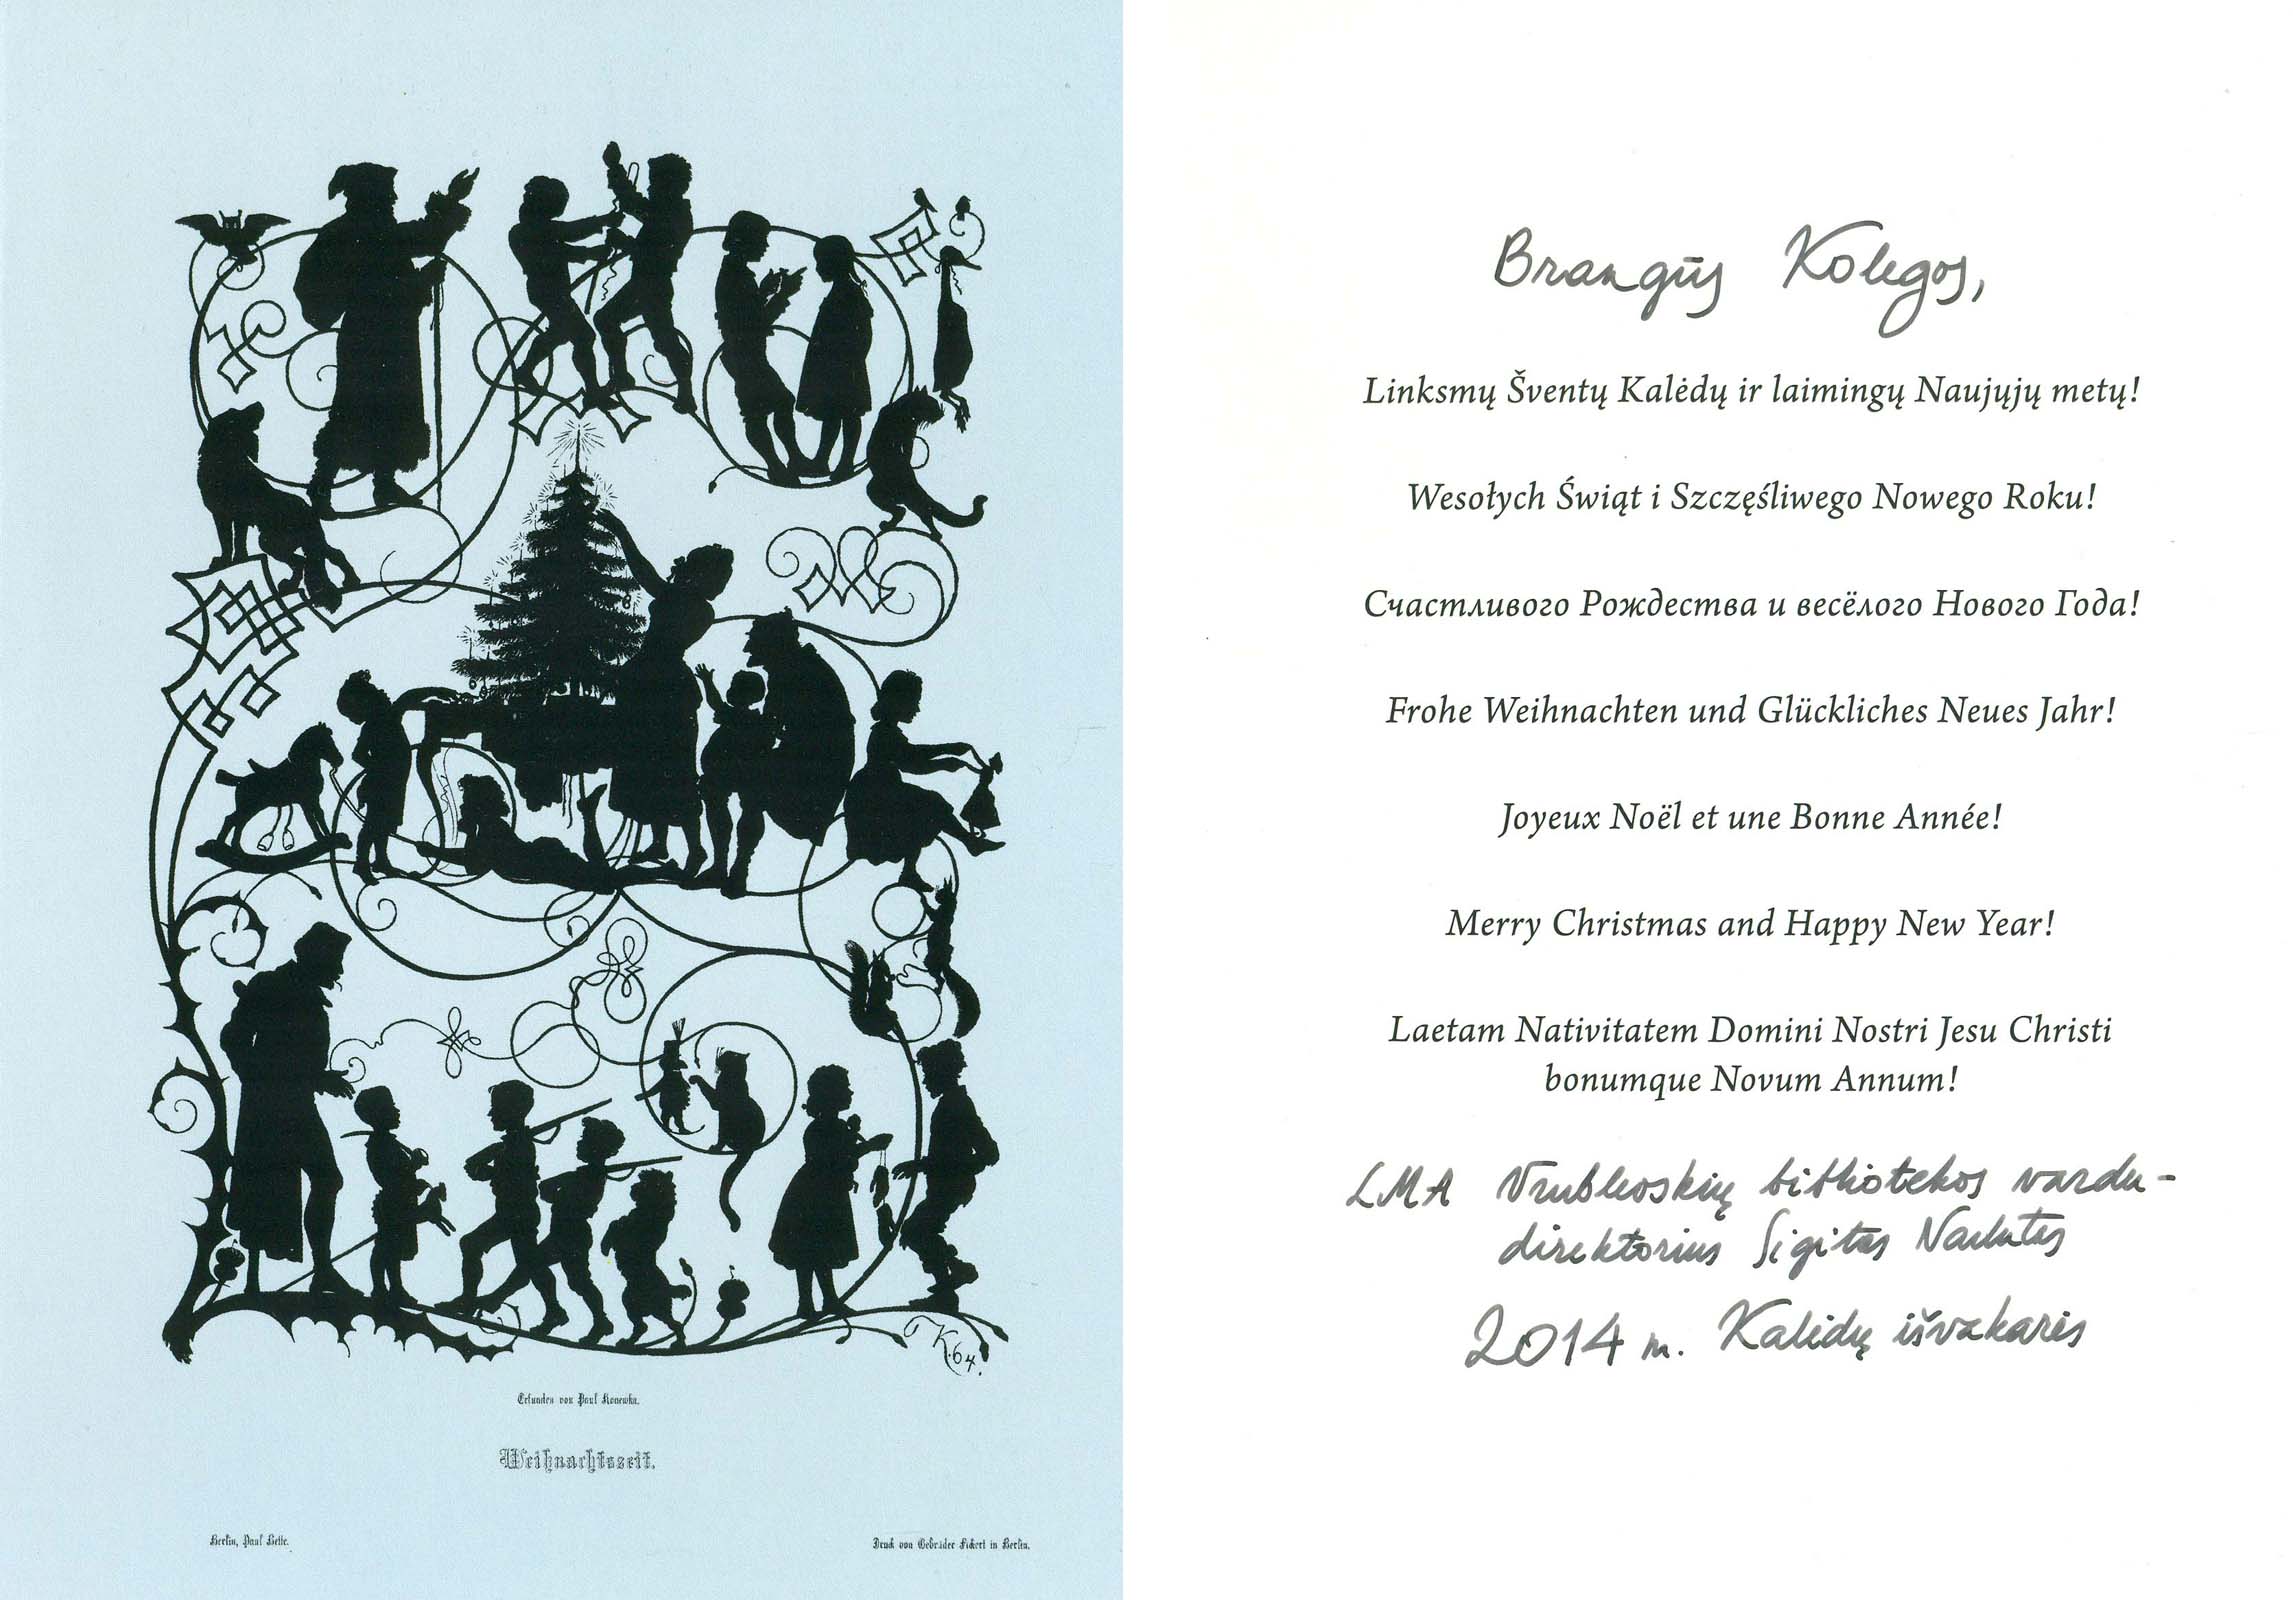 K.64.
Erfunden von Paul Konewka.
Weihnachtszeit.
Berlin, Paul Bette.
Druck von Gebrüder Fickert in Berlin.
Brangūs Kolegos,
Linksmų Šventų Kalėdų ir laimingų Naujųjų metų!
Wesołych Świąt i Szczęśliwego Nowego Roku!
Счастливого Рождества и весёлого Нового Года!
Frohe Weihnachten und Glückliches Neues Jahr!
Joyeux Noël et une Bonne Année!
Merry Christmas and Happy New Year!
Laetam Nativitatem Domini Nostri Jesu Christi
bonumque Novum Annum!
LMA Vrublevskių bibliotekos vardu -
direktorius Sigitas Narbutas
2014 m. Kalėdų išvakarės